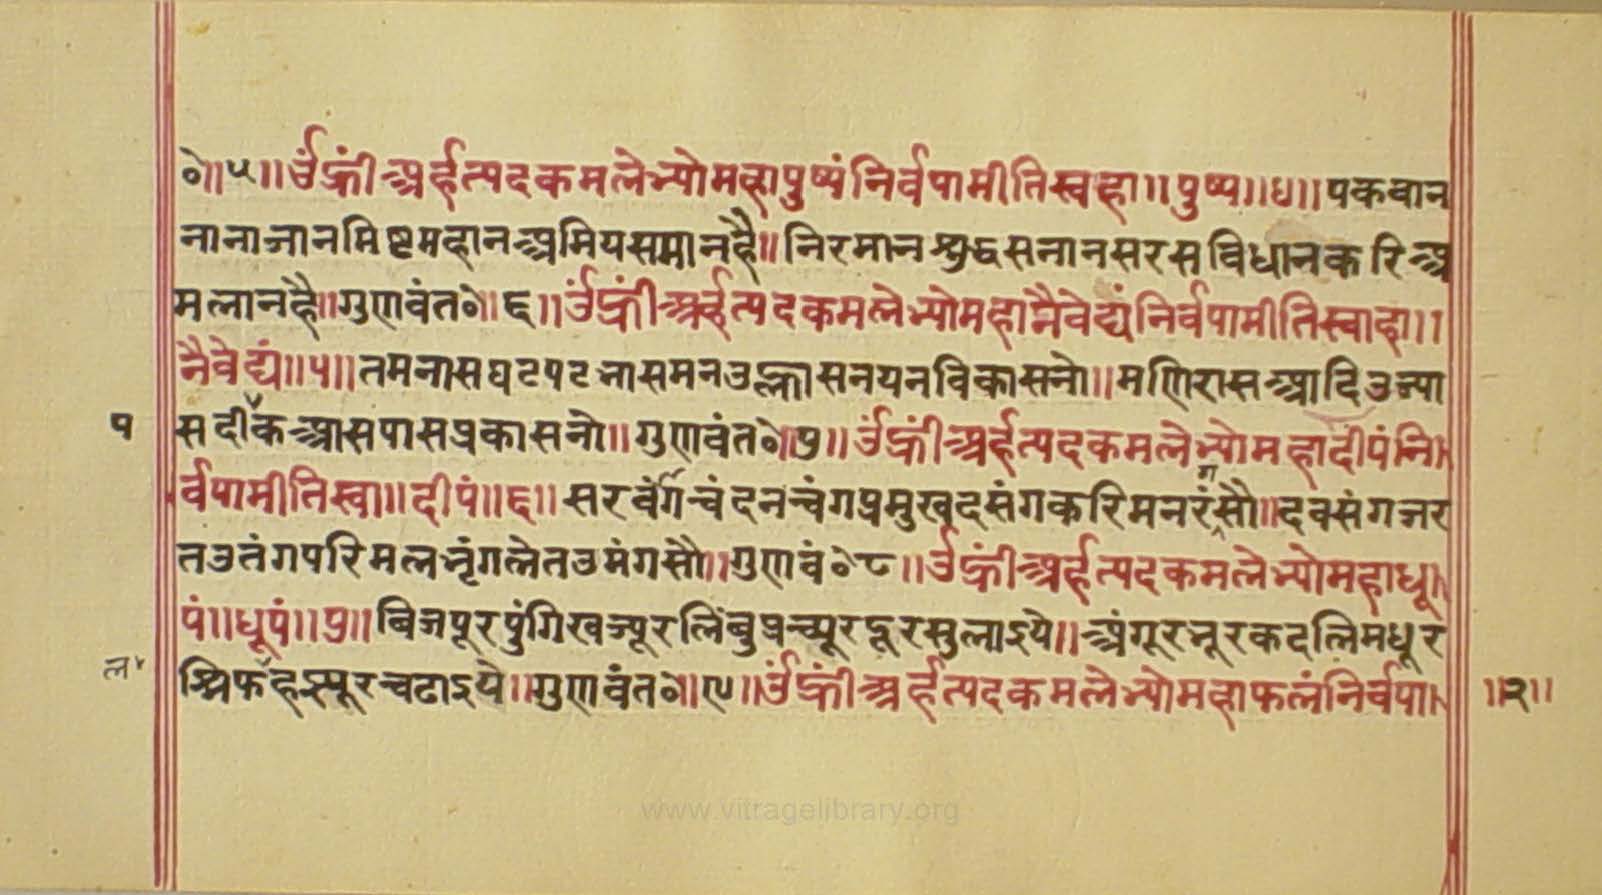 ०॥५॥ ॐ ह्रीं अर्हत्पदकमलेभ्यो महापुष्पं निर्वपामीति स्वाहा॥ पुष्प॥४॥ पकवान
नानाजानमिष्टमहानअमियसमानहै॥ निरमानशुद्धसनानसरसविधानकरिअ
मलानहै॥ गुणवंत०॥६॥ ॐ ह्रीं अर्हत्पदकमलेभ्यो महानैवेद्यं निर्वपामीति स्वाहा॥
नैवेद्यं॥५॥ तमनासघटपटभासमनउल्लासनयनविकासनो॥ मणिरासआदिउज्या
प
सदीकआसपासप्रकासनो॥ गुणवंत०॥७॥ ॐ ह्रीं अर्हत्पदकमलेभ्यो महादीपं नि
र्वपामीति स्वा॥ दीपं॥६॥ सरवंगिचंदनचंगप्रमुखदसंगकरिमनरंगसौ॥ दवसंगजर
तउतंगपरिमलभृंगलेतउमंगसौ॥ गुणवं०८॥ ॐ ह्रीं अर्हत्पदकमलेभ्यो महाधू
पं॥ धूपं॥७॥ बिजपूरपुंगिखज्पूरलिंबुप्रच्पूरदूरसुलाइये॥ अंगूरनूरकदलिमधूर
ल
श्रिफहज्पूरचढाइये॥ गुणवंत०॥९॥ ॐ ह्रीं अर्हत्पदकमलेभ्यो महाफलं निर्वपा
॥२॥
www.vitragelibrary.org